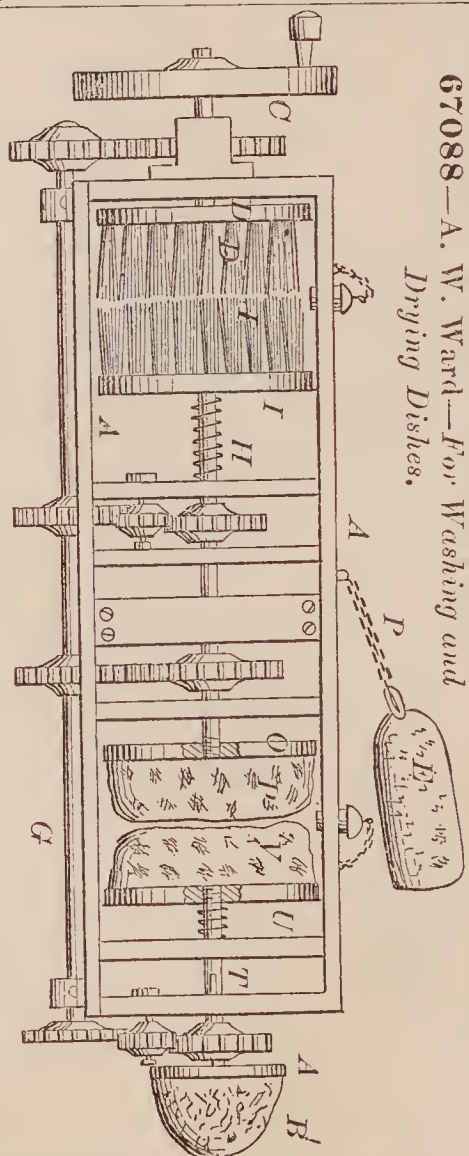 67088—A. W. Ward—For Washing and
Drying Dishes.
C
D
D
I
I
A
H
A
P
E
G
O
U
T
A
B'